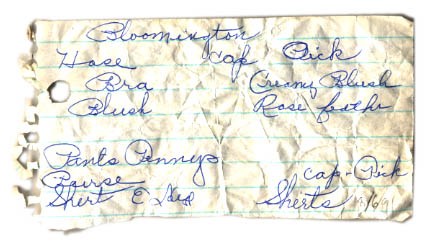 Bloomington
Hose cap Rick
Bra Creamy Blush
Blush Rose feather
Pants Penneys
Purse cap-Rick
Shert E Sherts